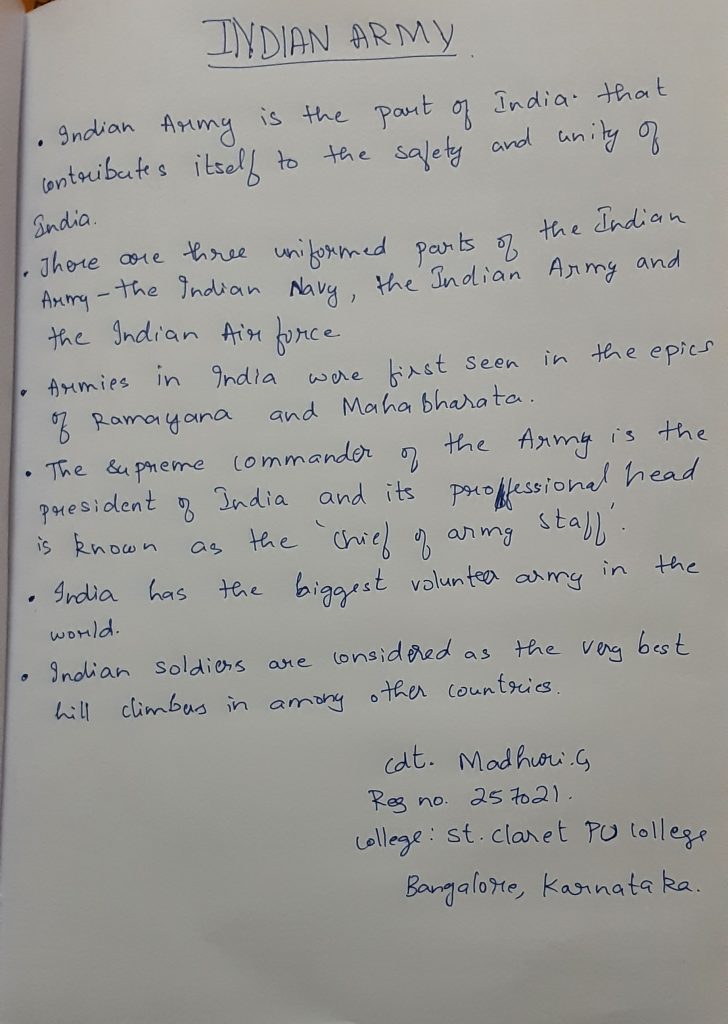 INDIAN ARMY.
• Indian Army is the part of India. that
contributes itself to the safety and unity of
India.
• There are three uniformed parts of the Indian
Army - the Indian Navy, the Indian Army and
the Indian Air force
• Armies in India were first seen in the epics
of Ramayana and Mahabharata.
• The supreme commander of the Army is the
president of India and its proffessional head
is known as the 'chief of army staff'.
• India has the biggest volunteer army in the
world.
• Indian soldiers are considered as the very best
hill climbers in among other countries.
cdt. Madhuri.G
Reg no. 257021.
college: st. claret PU college
Bangalore, Karnataka.